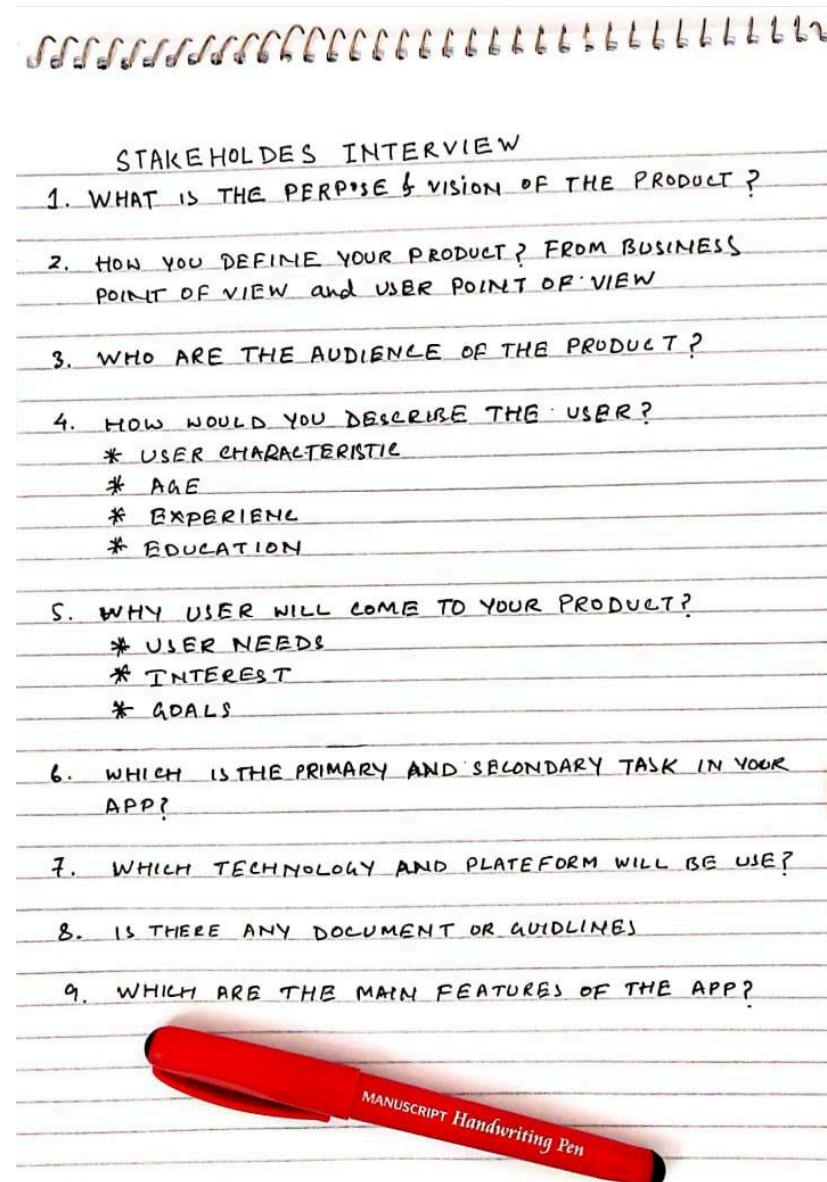 STAKEHOLDES INTERVIEW
1. WHAT IS THE PERPOSE & VISION OF THE PRODUCT?
2. HOW YOU DEFINE YOUR PRODUCT? FROM BUSINESS
POINT OF VIEW and USER POINT OF VIEW
3. WHO ARE THE AUDIENCE OF THE PRODUCT?
4. HOW WOULD YOU DESCRIBE THE USER?
* USER CHARACTERISTIC
* AGE
* EXPERIENC
* EDUCATION
5. WHY USER WILL COME TO YOUR PRODUCT?
* USER NEEDS
* INTEREST
* GOALS
6. WHICH IS THE PRIMARY AND SECONDARY TASK IN YOUR
APP?
7. WHICH TECHNOLOGY AND PLATEFORM WILL BE USE?
8. IS THERE ANY DOCUMENT OR GUIDLINES
9. WHICH ARE THE MAIN FEATURES OF THE APP?
MANUSCRIPT Handwriting Pen